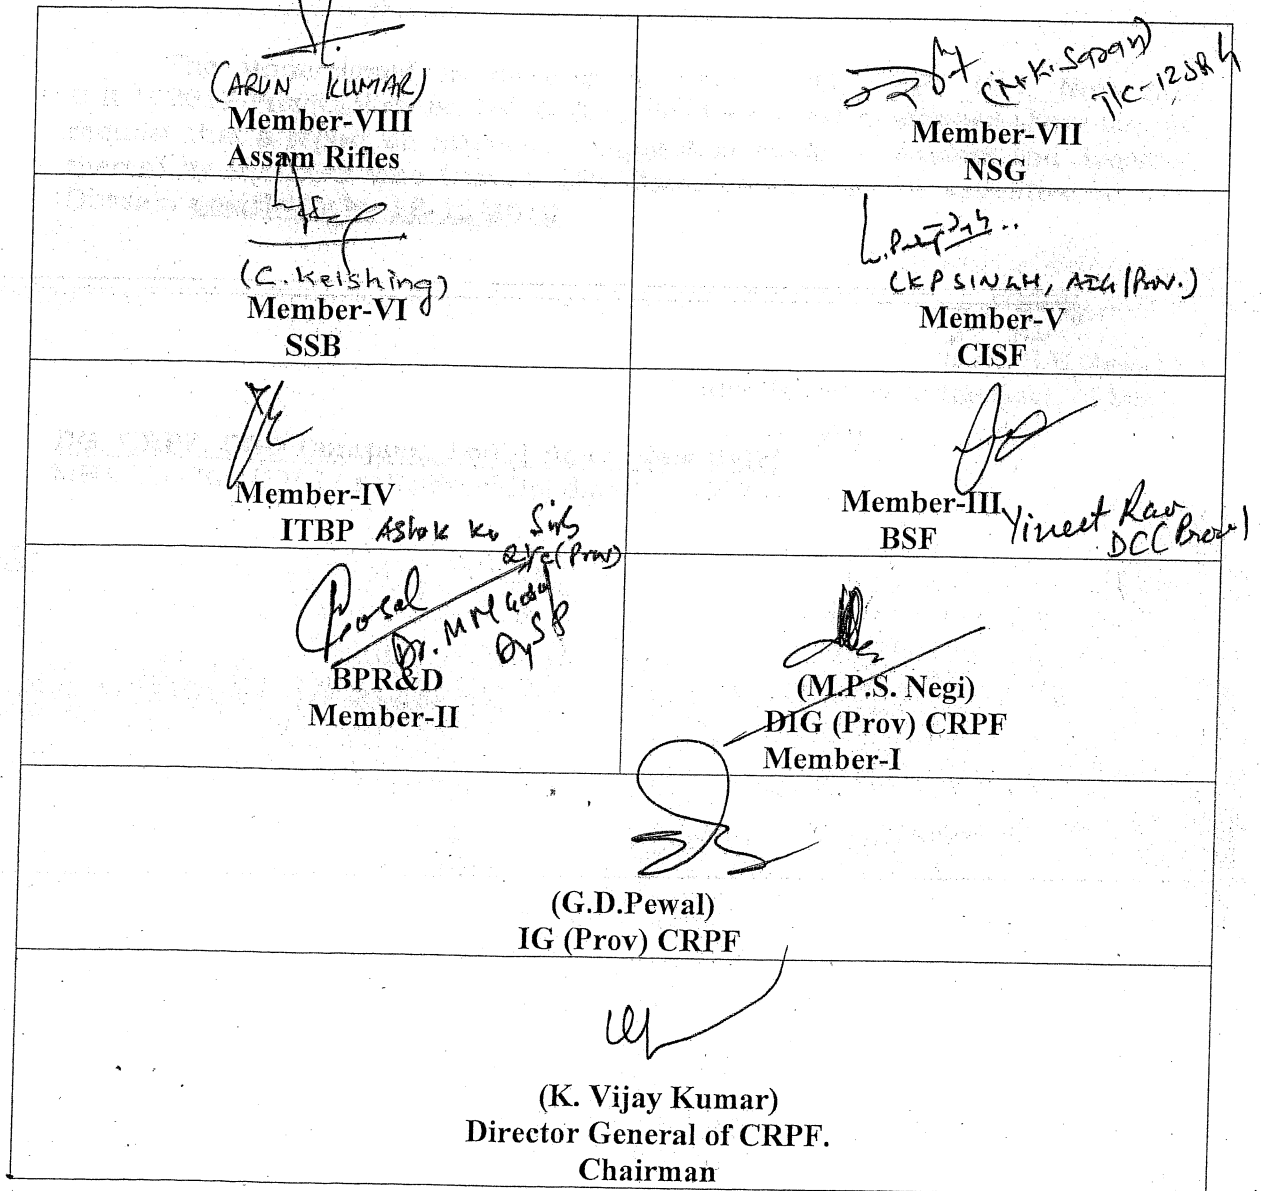 (ARUN KUMAR)
Member-VIII
Assam Rifles
Member-VII
NSG
(C. Keishing)
Member-VI
SSB
(K P SINGH, AIG (Prov.)
Member-V
CISF
Member-IV
ITBP Ashok Ku
Member-III
BSF Vineet
Dr. M M
DySP
BPR&D
Member-II
(M.P.S. Negi)
DIG (Prov) CRPF
Member-I
(G.D.Pewal)
IG (Prov) CRPF
(K. Vijay Kumar)
Director General of CRPF.
Chairman